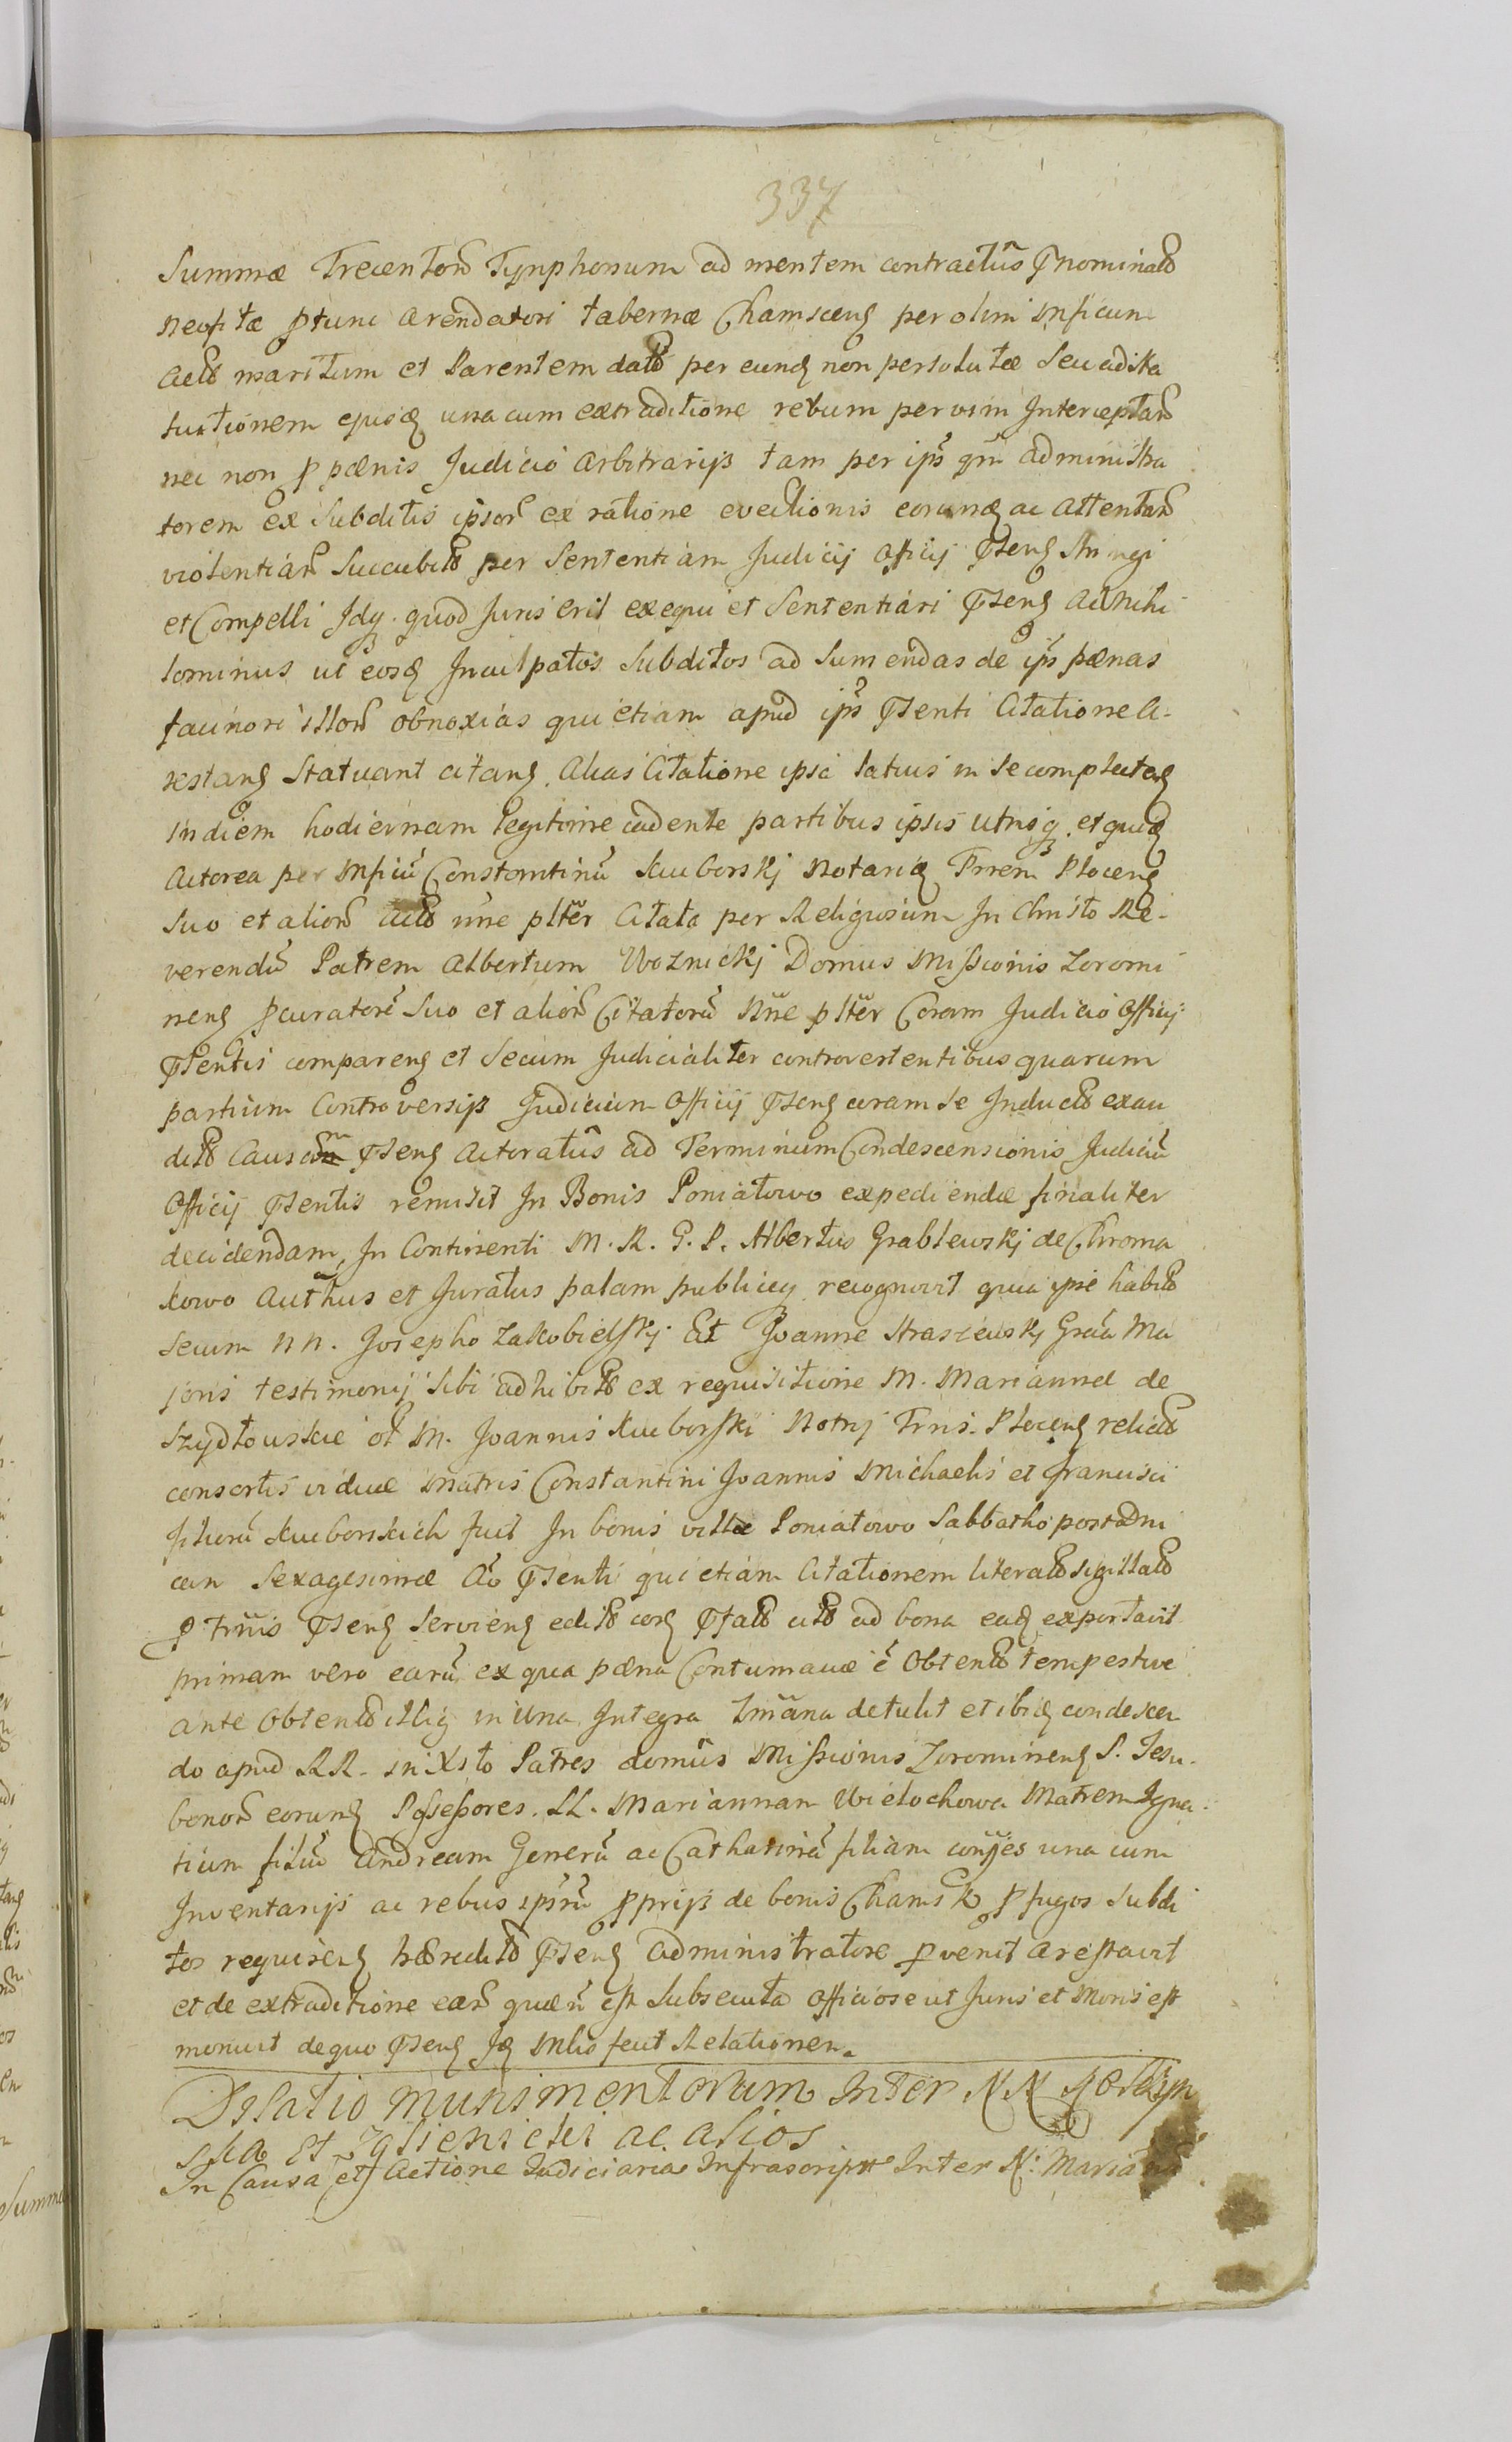 337
Summæ Trecentorũ Tynphonum ad mentem contractûs Pnominató
neofitæ ptunc arendatori tabernæ Chamscenȝ per olim Mficum
actó maritum et Parentem dató per eunđ non persolutæ Seu adista
tuitionem ejusđ una cum extraditione rebum per vim Interceptarũ
nec non p pænis Judicio arbitrarijs tam per ipš qm̃ administra
torem ex Subditis ipsorũ ex ratione evectionis eorunđ ac attentarũ
violentiarũ Succubitó per Sententiam Judicij Officij Psenȝ Stringi
et Compelli Idq. quod Juris erit exequi et Sententiari Psenȝ ac Nihi
lominus ut eosđ Inculpatos Subditos ad Sumendas de ipš pænas
facinori illorũ obnoxias qui etiam apud ipš Psenti Citatione a-
restanȝ Statuant citanȝ. Alias Citatione ipsa latius in se complectenȝ
In diem hodiernam legitime cadente partibus ipsis utrisq. et quiđ
Actorea per Mficũ Constantinũ Kuc̈borskj Notariđ Trrem Plocenȝ
Suo et aliorũ actó nñe pltẽr Citata per Religiosum In Christo Re-
verendũ Patrem Albertum Woznickj Domus Missionis Zoromi
nenȝ pcuratorẽ Suo et aliorũ Citatorũ Nñe pltẽr Coram Judicio Officij
Psentis comparenȝ et Secum Judicialiter controvertentibus quarum
partium Controversijs Judicium Officij Psenȝ coram se Inductó exau
ditó Causam Psenȝ Actoratûs ad Terminum Condescensionis Judicũ
Officij Psentis remisit In Bonis Poniatowo expediendæ finaliter
decidendam, In Continenti M. R. G. P. Albertus Grablewskj de Chroma
kowo Auth̃us et Juratus palam publiceq. recognovit quia ipse habitó
Secum NN. Josepho Zakobielskj Et Joanne Straszewskj Gratia Ma
joris testimonij Sibi adhibitó ex requisitione M. Mariannæ de
Szydłouskie ol̃ M. Joannis Kucborski Notrij Trris. Plocenȝ relictó
consortis viduæ Matris Constantini Joannis Michaelis et Francisci
filiorũ Kucborskich fuit In bonis villæ Poniatowo Sabbatho post Dni
cam Sexagesimæ Aõ Psenti qui etiam Citationem literató sigillató
p Trr̃is Psenȝ Servienȝ editó corȝ Pfató citó ad bona eađ exportavit
primam vero earũ ex qua pæna Contumaciæ ẽ Obtentó tempestive
ante Obtentó illiq in Una Integra Zmana detulit et ibiđ condescen
do apud RR. in Xsto Patres domûs Missionis Zorominenȝ S. Iesu.
bonorũ eorunđ Possessores. LL. Mariannam Wielochowa Matrem Igna-
tium filiũ Andream Generũ ac Catharinã filiam conjges una cum
Inventarijs ac rebus ipšrũ pprijs de bonis Chamsk pfugos Subdi
tos requirenȝ hæreditó Psenȝ administratore pvenit arestavit
et de extraditione earũ quæ ñ est Subsecuta Officiose ut Juris et Moris est
monuit de quo Psenȝ Iđ Mlis fecit Relationem.
Dilatio munimentorum Inter NN
ska Et Zglienicki ac alios
In Causa et Actione Judiciaria Infrascripta Inter N: Mariana